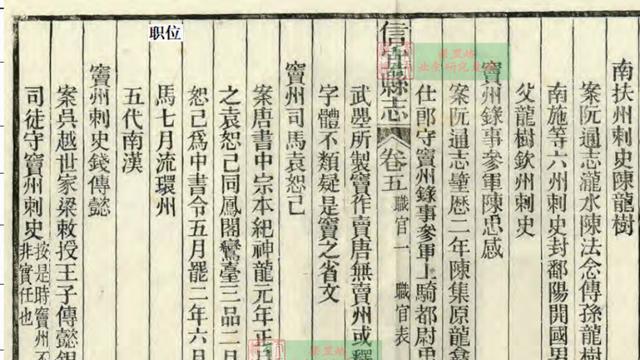 职位
南扶州刺史陳龍樹
案阮通志瀧水陳法念傳孫龍樹
南施等六州刺史封鄱陽開國男
父龍樹欽州刺史
竇州錄事參軍陳思感
案阮通志歷二年陳集原龍龕
仕郎守竇州錄事參軍上騎都尉思
信宜縣志 卷五 職官一 職官表
武曌所製竇作賣唐無賣州或釋
字體不類疑是竇之省文
竇州司馬袁恕己
案唐書中宗本紀神龍元年正
之袁恕己同鳳閣鸞臺三品二月
恕己爲中書令五月罷二年六月
馬七月流環州
五代南漢
竇州刺史錢傳懿
案吳越世家梁敕授王子傳懿銀
司徒守竇州刺史
按是時竇州不
非實任也